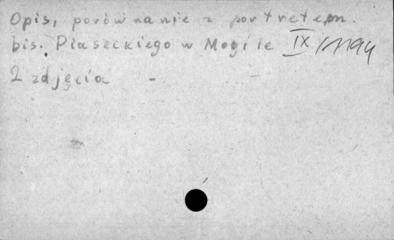 Opis, porównanie z portretem
bis. Piaseckiego w Mogile IX/1194
2 zdjęcia -